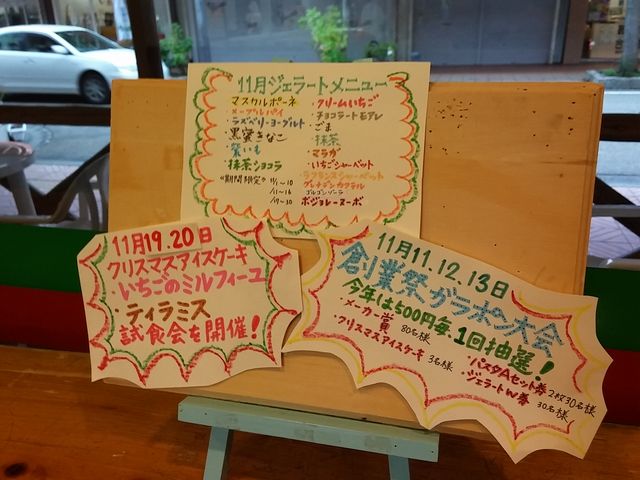 11月ジェラートメニュー
・マスカルポーネ
・メープルパイ
・ラズベリーヨーグルト
・黒蜜きなこ
・紫いも
・抹茶ショコラ
・クリームいちご
・チョコラートモアレ
・ごま
・抹茶
・マラガ
・いちごシャーベット
・ラフランスシャーベット
《期間限定》 11/1~10 グレナデンカクテル
11/11~18 ゴルゴンゾーラ
11/19~30 ボジョレーヌーボ
11月19.20日
クリスマスアイスケーキ
・いちごのミルフィーユ
・ティラミス
試食会を開催!
11月11.12.13日
創業祭ガラポン大会
今年は500円毎、1回抽選!
・メーカー賞 80名様
・クリスマスアイスケーキ 3名様
・パスタAセット券 2枚30名様
・ジェラートW券 30名様